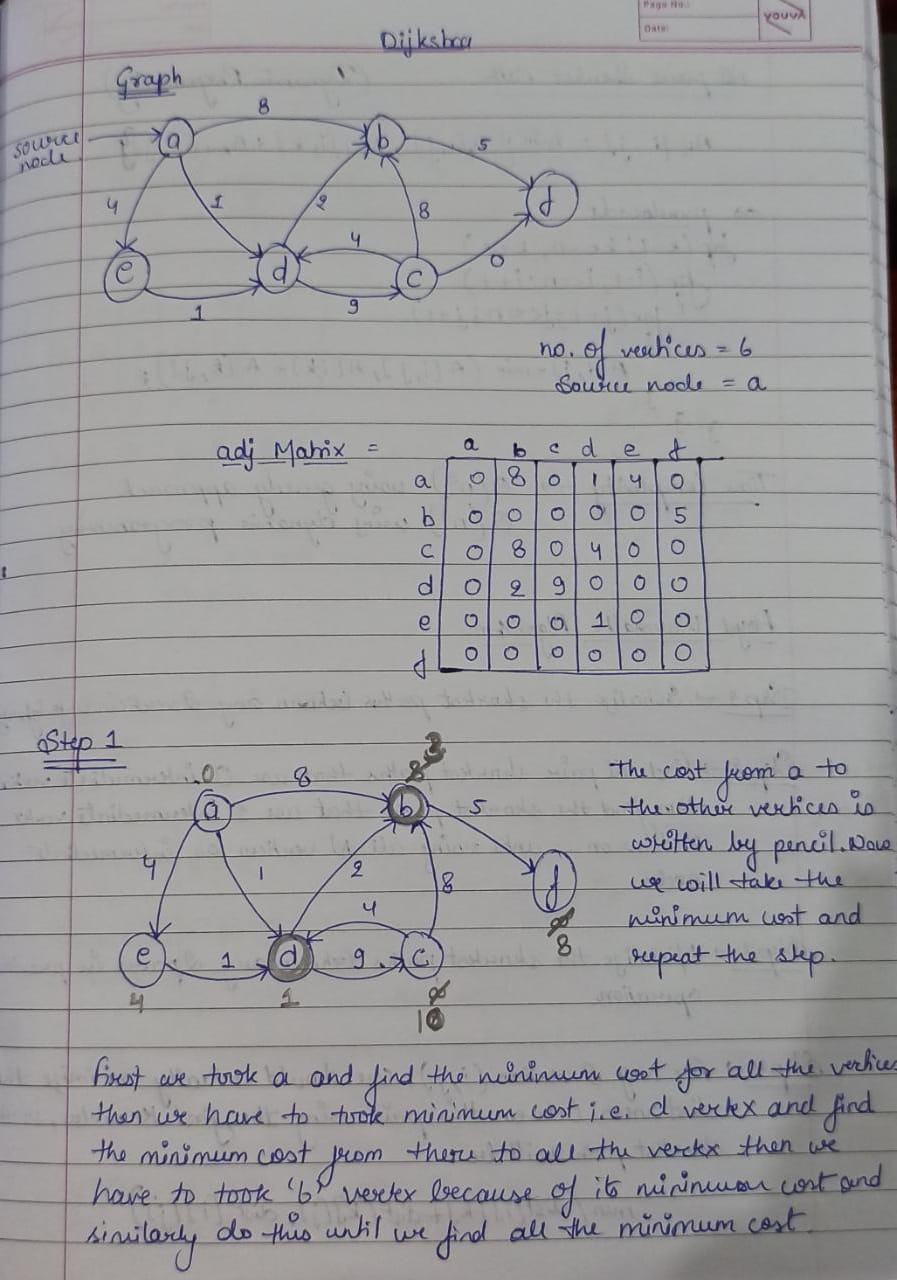 Page No.:
Date:
YOUVA
Dijkstra
Graph
source
node
a
8
b
5
f
4
1
2
8
4
0
e
d
c
1
9
no. of vertices = 6
Source node = a
adj Matrix =
a b c d e f
a 0 8 0 1 4 0
b 0 0 0 0 0 5
c 0 8 0 4 0 0
d 0 2 9 0 0 0
e 0 0 0 1 0 0
f 0 0 0 0 0 0
Step 1
0
8
8 3
a
b
5
4
1
2
8
4
f
∞
8
e
1
d
9
c
4
1
∞
10
The cost from a to
the other vertices is
written by pencil. Now
we will take the
minimum cost and
repeat the step.
first we took a and find the minimum cost for all the vertices
then we have to took minimum cost i.e. d vertex and find
the minimum cost from there to all the vertex then we
have to took 'b' vertex because of its minimum cost and
similarly do this until we find all the minimum cost.